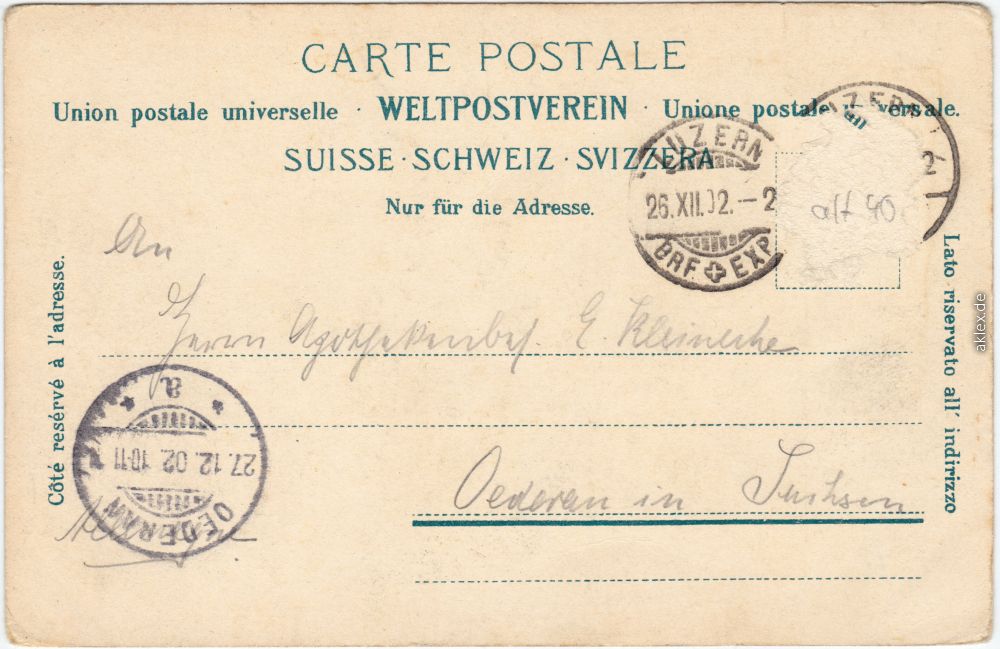 CARTE POSTALE
Union postale universelle · WELTPOSTVEREIN · Unione postale universale.
SUISSE · SCHWEIZ · SVIZZERA
Nur für die Adresse.
LUZERN
26.XII.02.–2
BRF EXP
LUZERN
2
alt 40
An
Herrn Apothekenbes. E. Kleinecke
Oederan in Sachsen
Côté resérvé à l'adresse.
Lato riservato all' indirizzo
a
27.12.02.10-11
OEDERAN
aklex.de